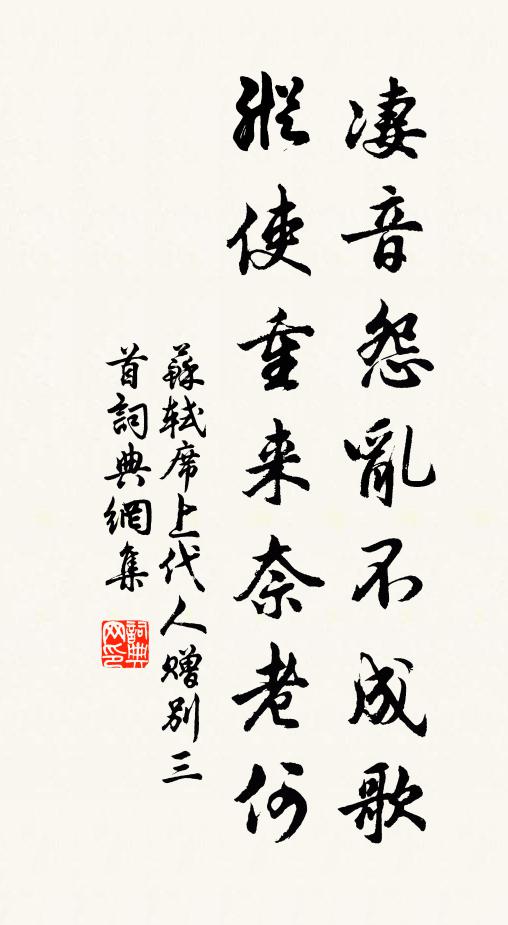 凄音怨亂不成歌
縱使重来奈老何
蘇軾席上代人贈別三
首詞典網集
詞典
網印